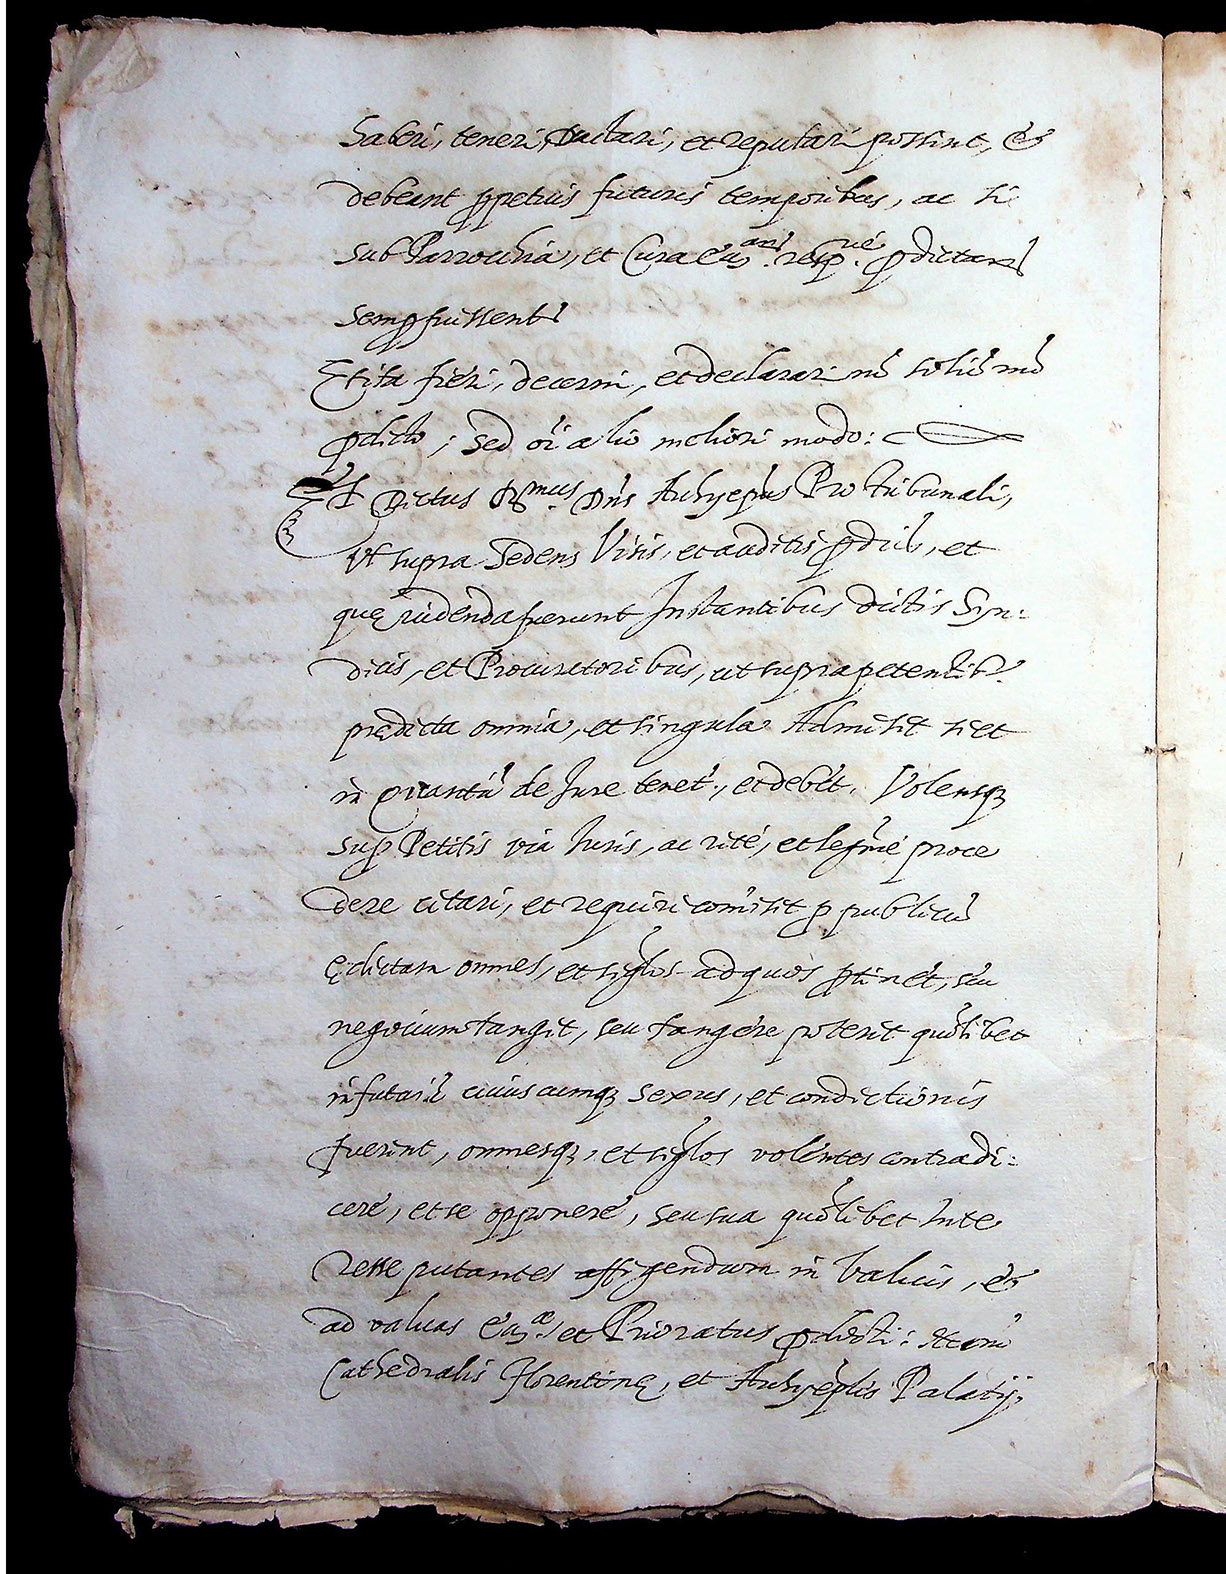 haberi, teneri, tractari, et reputari possint, et
debeant ppetuis futuris temporibus, ac si
sub Parrochia, et Cura
semp fuissent
Et ita fieri, decerni, et declarari nō solū mō
pdicto, sed oī alio meliori modo:
Et Dictus Rmus Dn̄s Archyepūs Pro tribunali,
Ut supra Sedens Visis, et auditis pdict, et
quę videnda fuerunt Instantibus dictis Syn-
dicis, et Procuratoribus, ut supra petentib
prędicta omnia, et singula Admisit si et
in quantū de Jure tenet, et debet. Volensq
sup Petitis via Iuris, ac rité, et legmé proce
dere citari, et requiri comisit p publicū
ędictum omnes, et siglos ad quos ptinet, seu
negocium tangit, seu tangere poterit quolibet
in futurū cuiuscumq sexus, et condictionis
fuerint, omnesq, et siglos volentes contradi-
cere, et se opponere, seu sua quolibet Inte
resse putantes affigendum in valuis, et
ad valuas et Prioratus pdicti:
Cathedralis Florentinę, et Archyeplis Palatij,